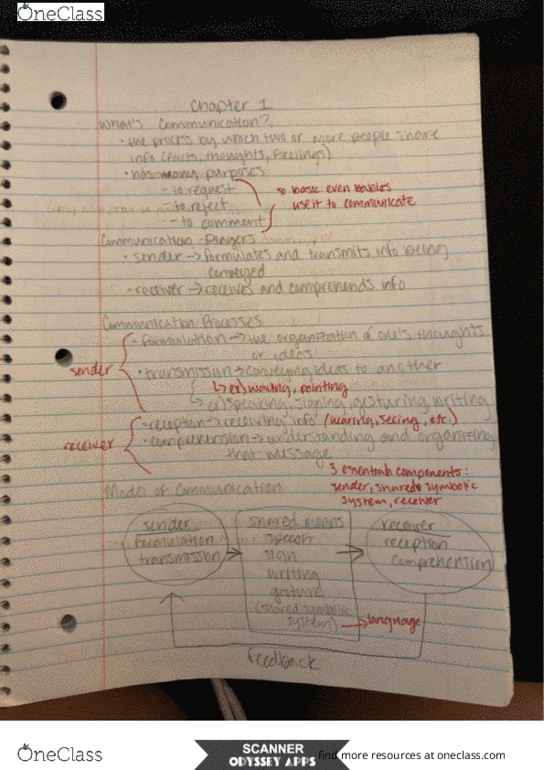 OneClass
Chapter 1
What's Communication?
• the process by which two or more people share
info (facts, thoughts, feelings)
• has many purposes
- to request
→ basic even babies
- to reject
use it to communicate
- to comment
Communication Players
• sender → formulates and transmits info being
conveyed
• receiver → receives and comprehends info
Communication Processes
• formulation → the organization of one's thoughts
or ideas
sender
• transmission → conveying ideas to another
↳ ex) pointing
↳ ex) speaking, signing, gesturing, writing
• reception → receiving info (hearing, seeing, etc.)
receiver
• comprehension → understanding and organizing
that message
3 essential components:
Model of Communication
sender, shared symbolic
system, receiver
sender
formulation
transmission
shared means
speech
sign
writing
gesture
(shared symbolic
system) → language
receiver
reception
comprehension
feedback
OneClass
SCANNER
ODYSSEY APPS
find more resources at oneclass.com